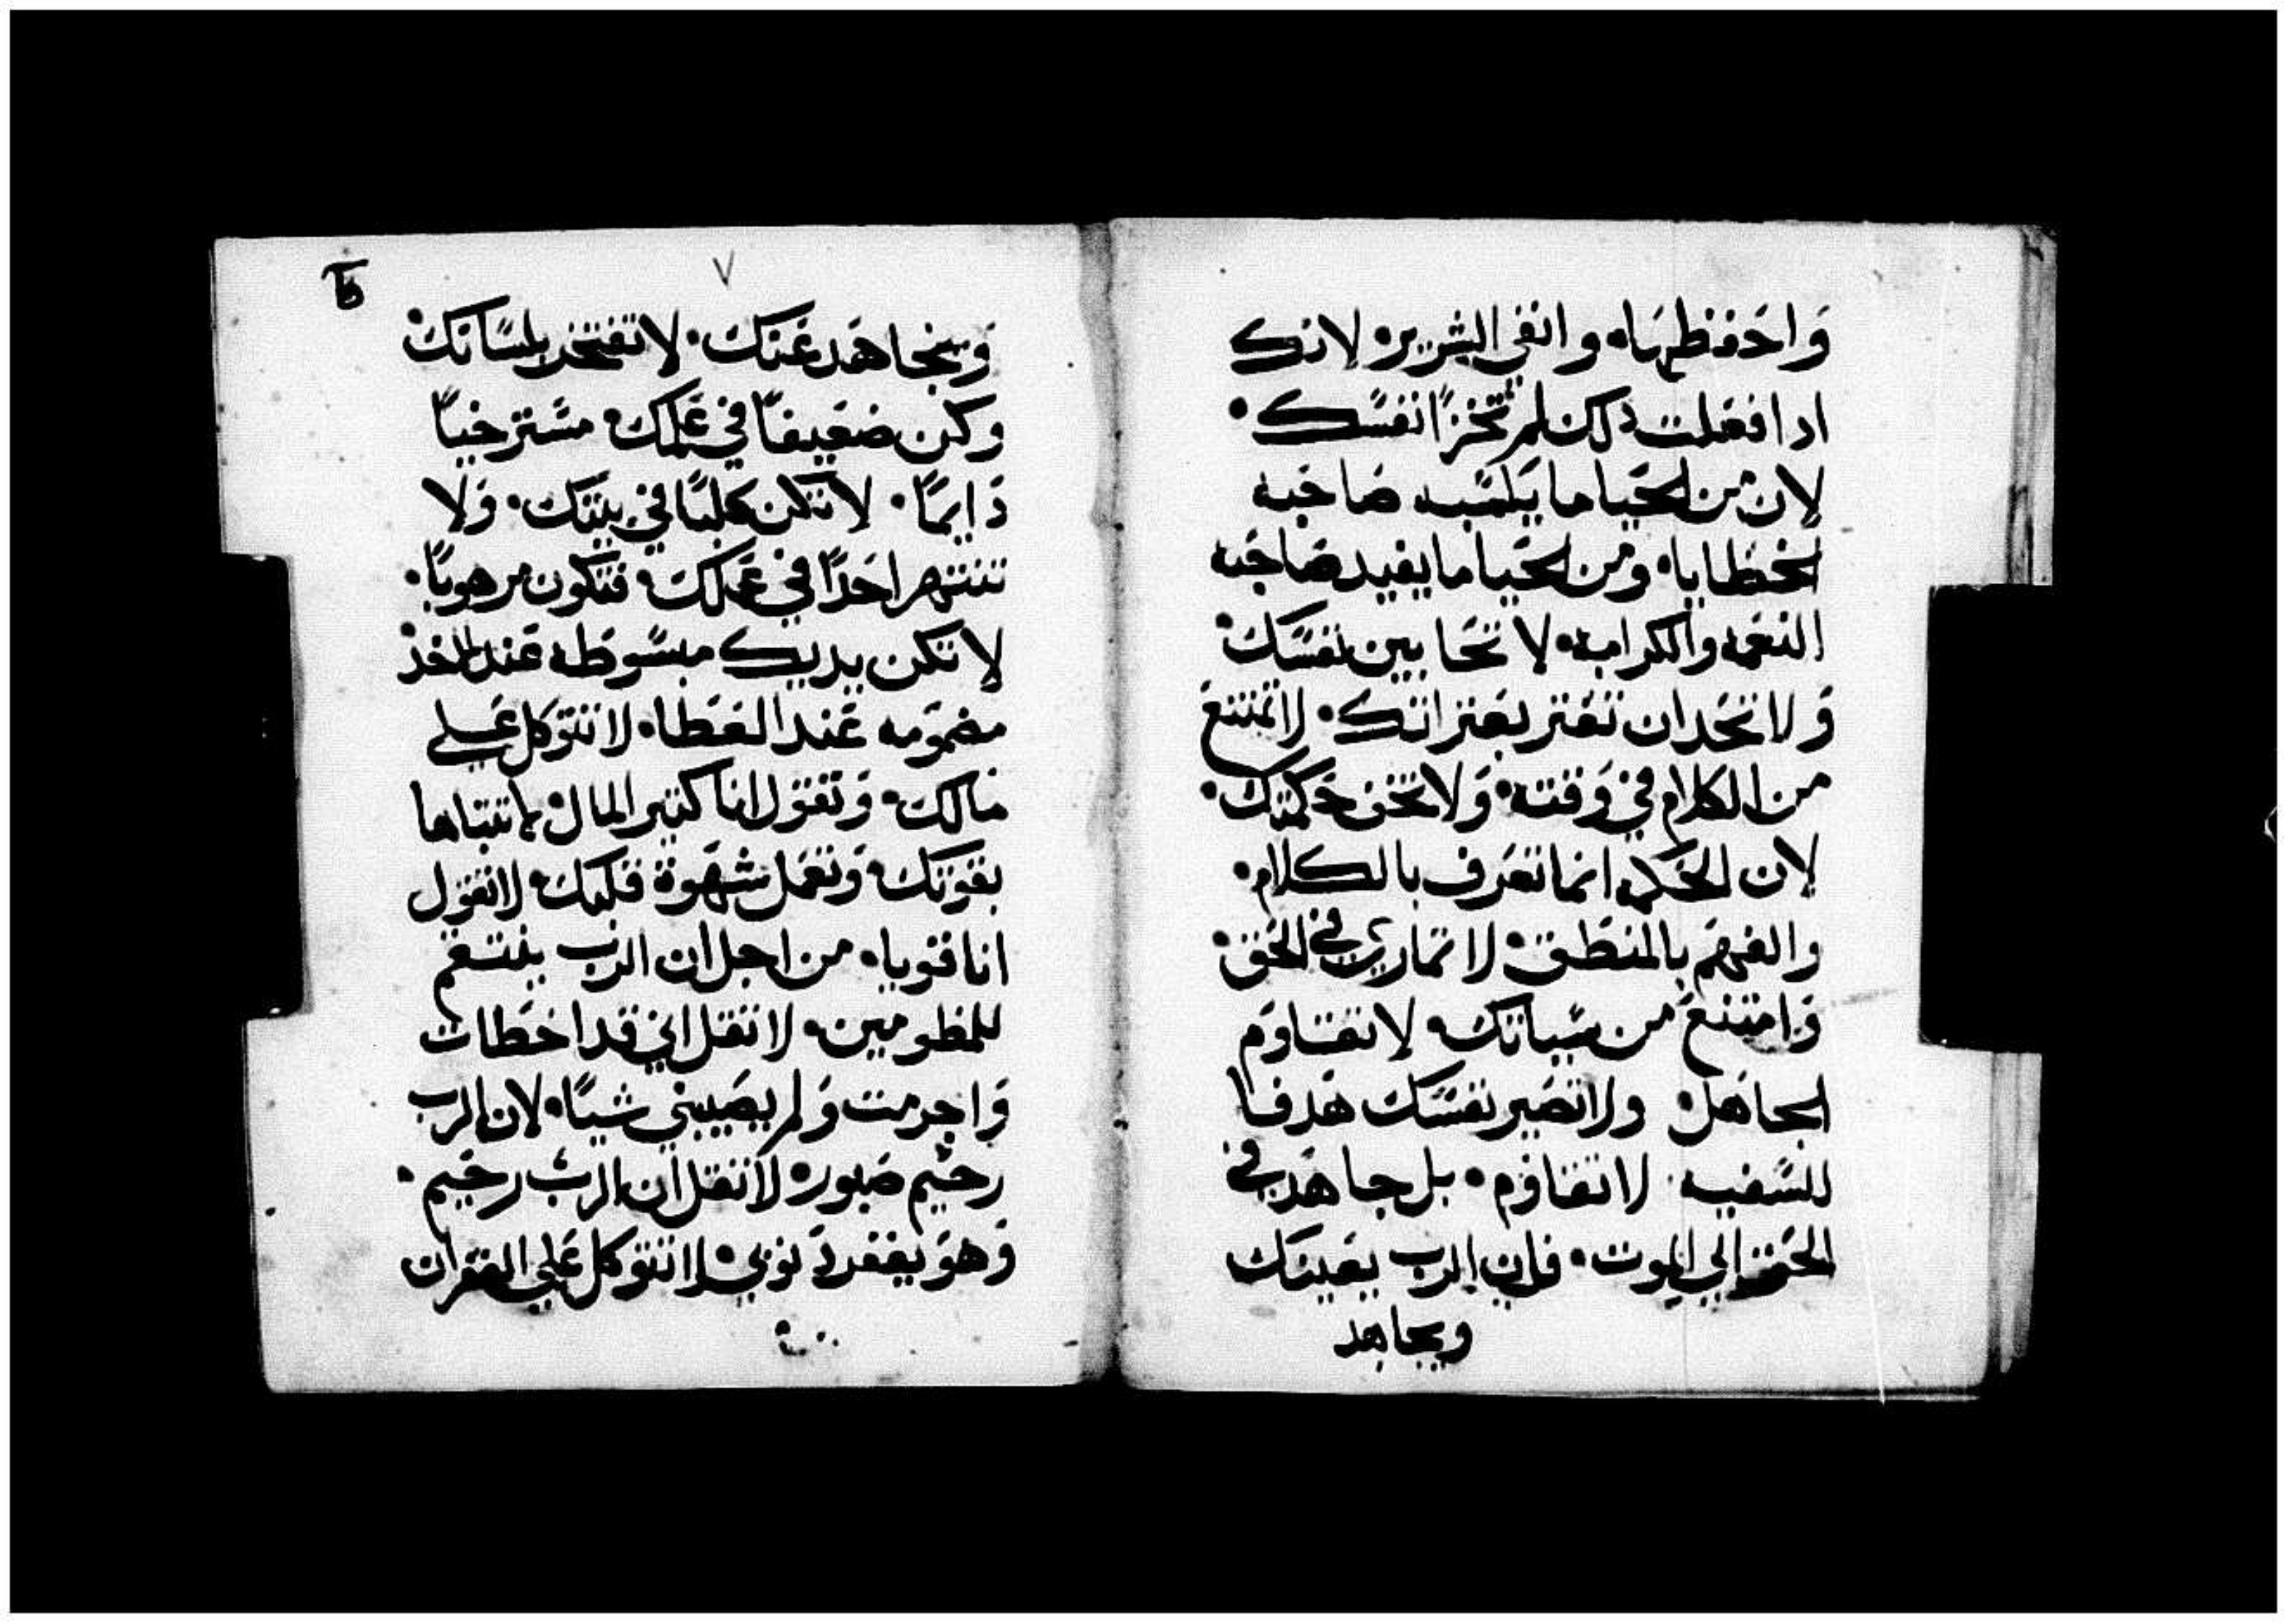 وَاحَفظهَا. واتقي الشرير. لانك
ادا فعَلت دلك لم تخزاَ نفسَك.
لان من الحَيا ما يكسَب صَاحَبه
الخطَايا. ومَن الحَيا ما يفيد صَاحَبه
النعَمه والكرامه. لا تحَابين نفسَك.
وَلا تحَد ان تعَتر بعَتراتك. لا تمتنعَ
من الكلام في وَقته. وَلا تخف حَكمتك.
لان الحَكمه انما تعَرف بالكلام.
والفهَم بالمنطَق. لا تماري في الحَق.
وَامتنعَ من سَياتك. لا تقاوَم
الجاهَل. ولا تصَير نفسَك هَدفا
للسَفيه. لا تقاوَم. بل جاهَد في
الحَق الي الموت. فان الرب يعَينك
ويجاهد
٧
وَيجاهَد عَنك. لا تفتخر بلسَانك.
وكن ضعَيفاً في عَملك. مسَترخياً
دَايماً. لا تكن كلباً في بيتك. وَلا
تنتهر احَداً في عَملك. فتكون مرهوباً.
لا تكن يديك مبسَوطَه عَند الاخد.
مضمَومه عَند العَطَا. لا تتوَكل عَلي
مالك. وَتقوَل انا كتير المال.
بقوَتك. وَتعَمل شهَوة قلبك. لا تقوَل
انا قويا. من اجل ان الرب ينتقم
للمظلومين. لا تقل اني قد اخطَات
وَاجرمت وَلم يصَيبني شياً. لان الرب
رحَيم صَبور. لا تقل ان الرب رحَيم.
وَهوَ يغفر دَنوبي. لا تتوَكل عَلي الغفران